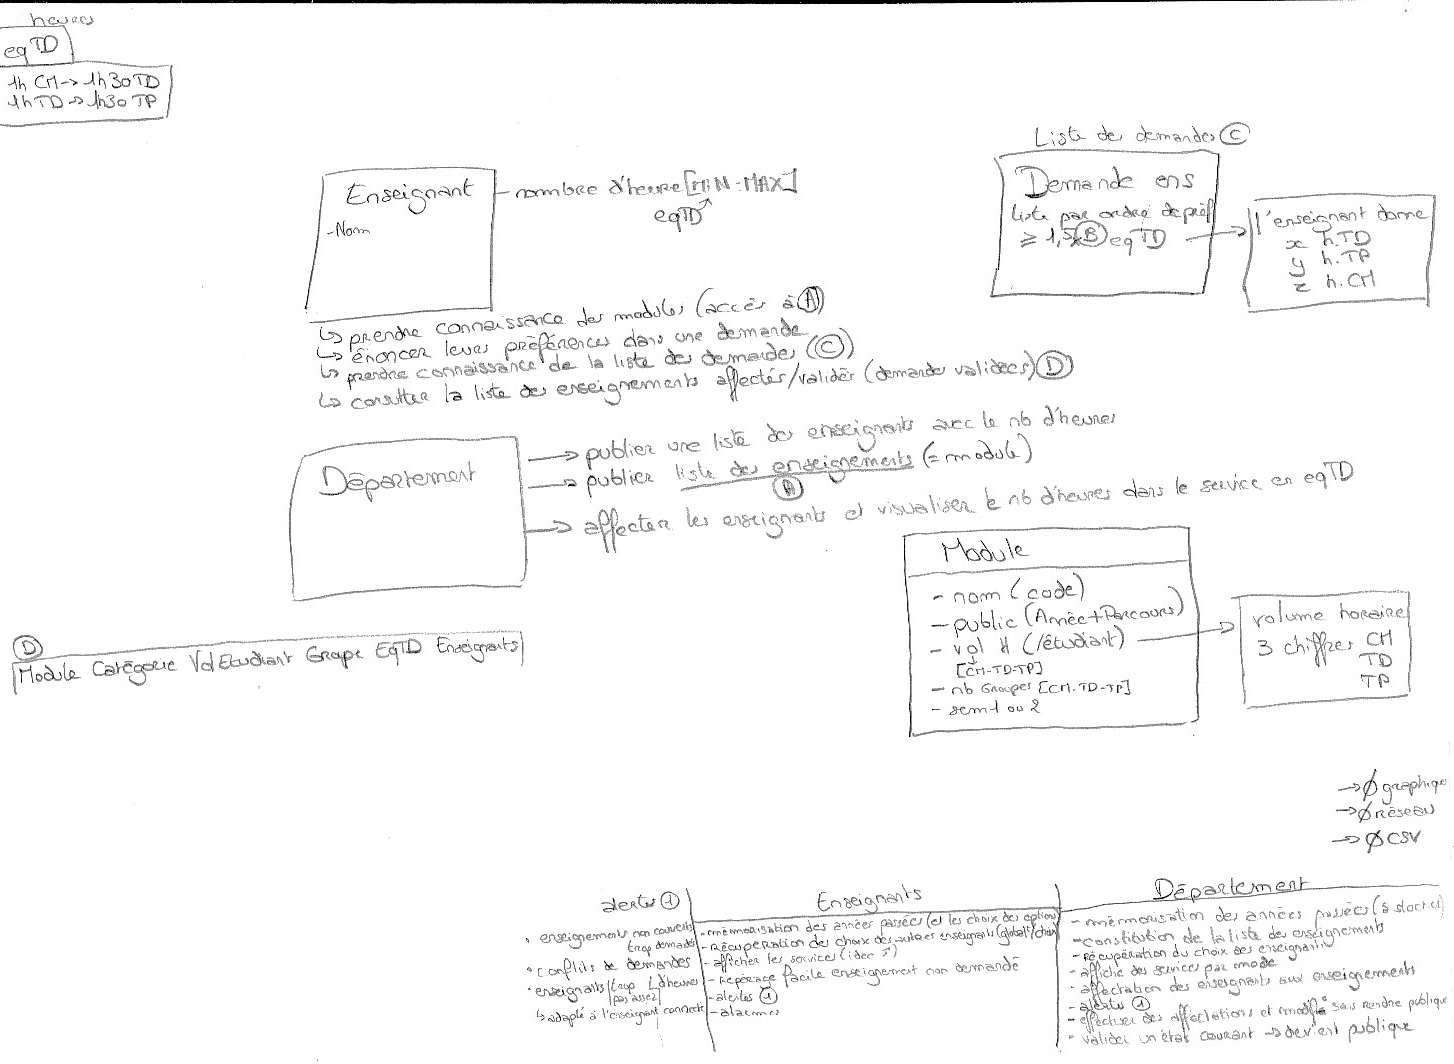 heures
eqTD
1h CM → 1h30 TD
1h TD → 1h30 TP
Enseignant
- Nom
nombre d'heure [MIN - MAX]
eqTD
Liste de demandes (C)
Demande ens
liste par ordre de préf
≥ 1,5 x (B) eqTD
l'enseignant donne
x h.TD
y h.TP
z h.CM
↳ prendre connaissance des modules (accès à (A))
↳ énoncer leurs préférences dans une demande
↳ prendre connaissance de la liste des demandes (C)
↳ consulter la liste des enseignements affectés/validés (demandes validées) (D)
Département
→ publier une liste des enseignants avec le nb d'heures
→ publier liste des enseignements (= module)
(A)
→ affecter les enseignants et visualiser le nb d'heures dans le service en eqTD
Module
- nom (code)
- public (Année+Parcours)
- vol H (/étudiant)
[CM-TD-TP]
- nb Groupes [CM-TD-TP]
- sem 1 ou 2
volume horaire
3 chiffres CM
TD
TP
(D)
Module Catégorie Vol Etudiant Groupe EqTD Enseignants
→ Ø graphique
→ Ø réseau
→ Ø CSV
alertes (1)
. enseignements non couverts
trop demandés
. conflits de demandes
. enseignants/trop d'heures
pas assez
↳ adapté à l'enseignant connecté
Enseignants
- mémorisation des années passées (et les choix des options)
- Récupération des choix des autres enseignants
- afficher les services
- Repérage facile enseignement non demandé
- alertes (1)
- alarmes
Département
- mémorisation des années passées
- constitution de la liste des enseignements
- récupération du choix des enseignants
- affiche des services par mode
- affectation des enseignants aux enseignements
- alertes (1)
- effectuer des affectations et modifs sans rendre publique
- valider un état courant → devient publique